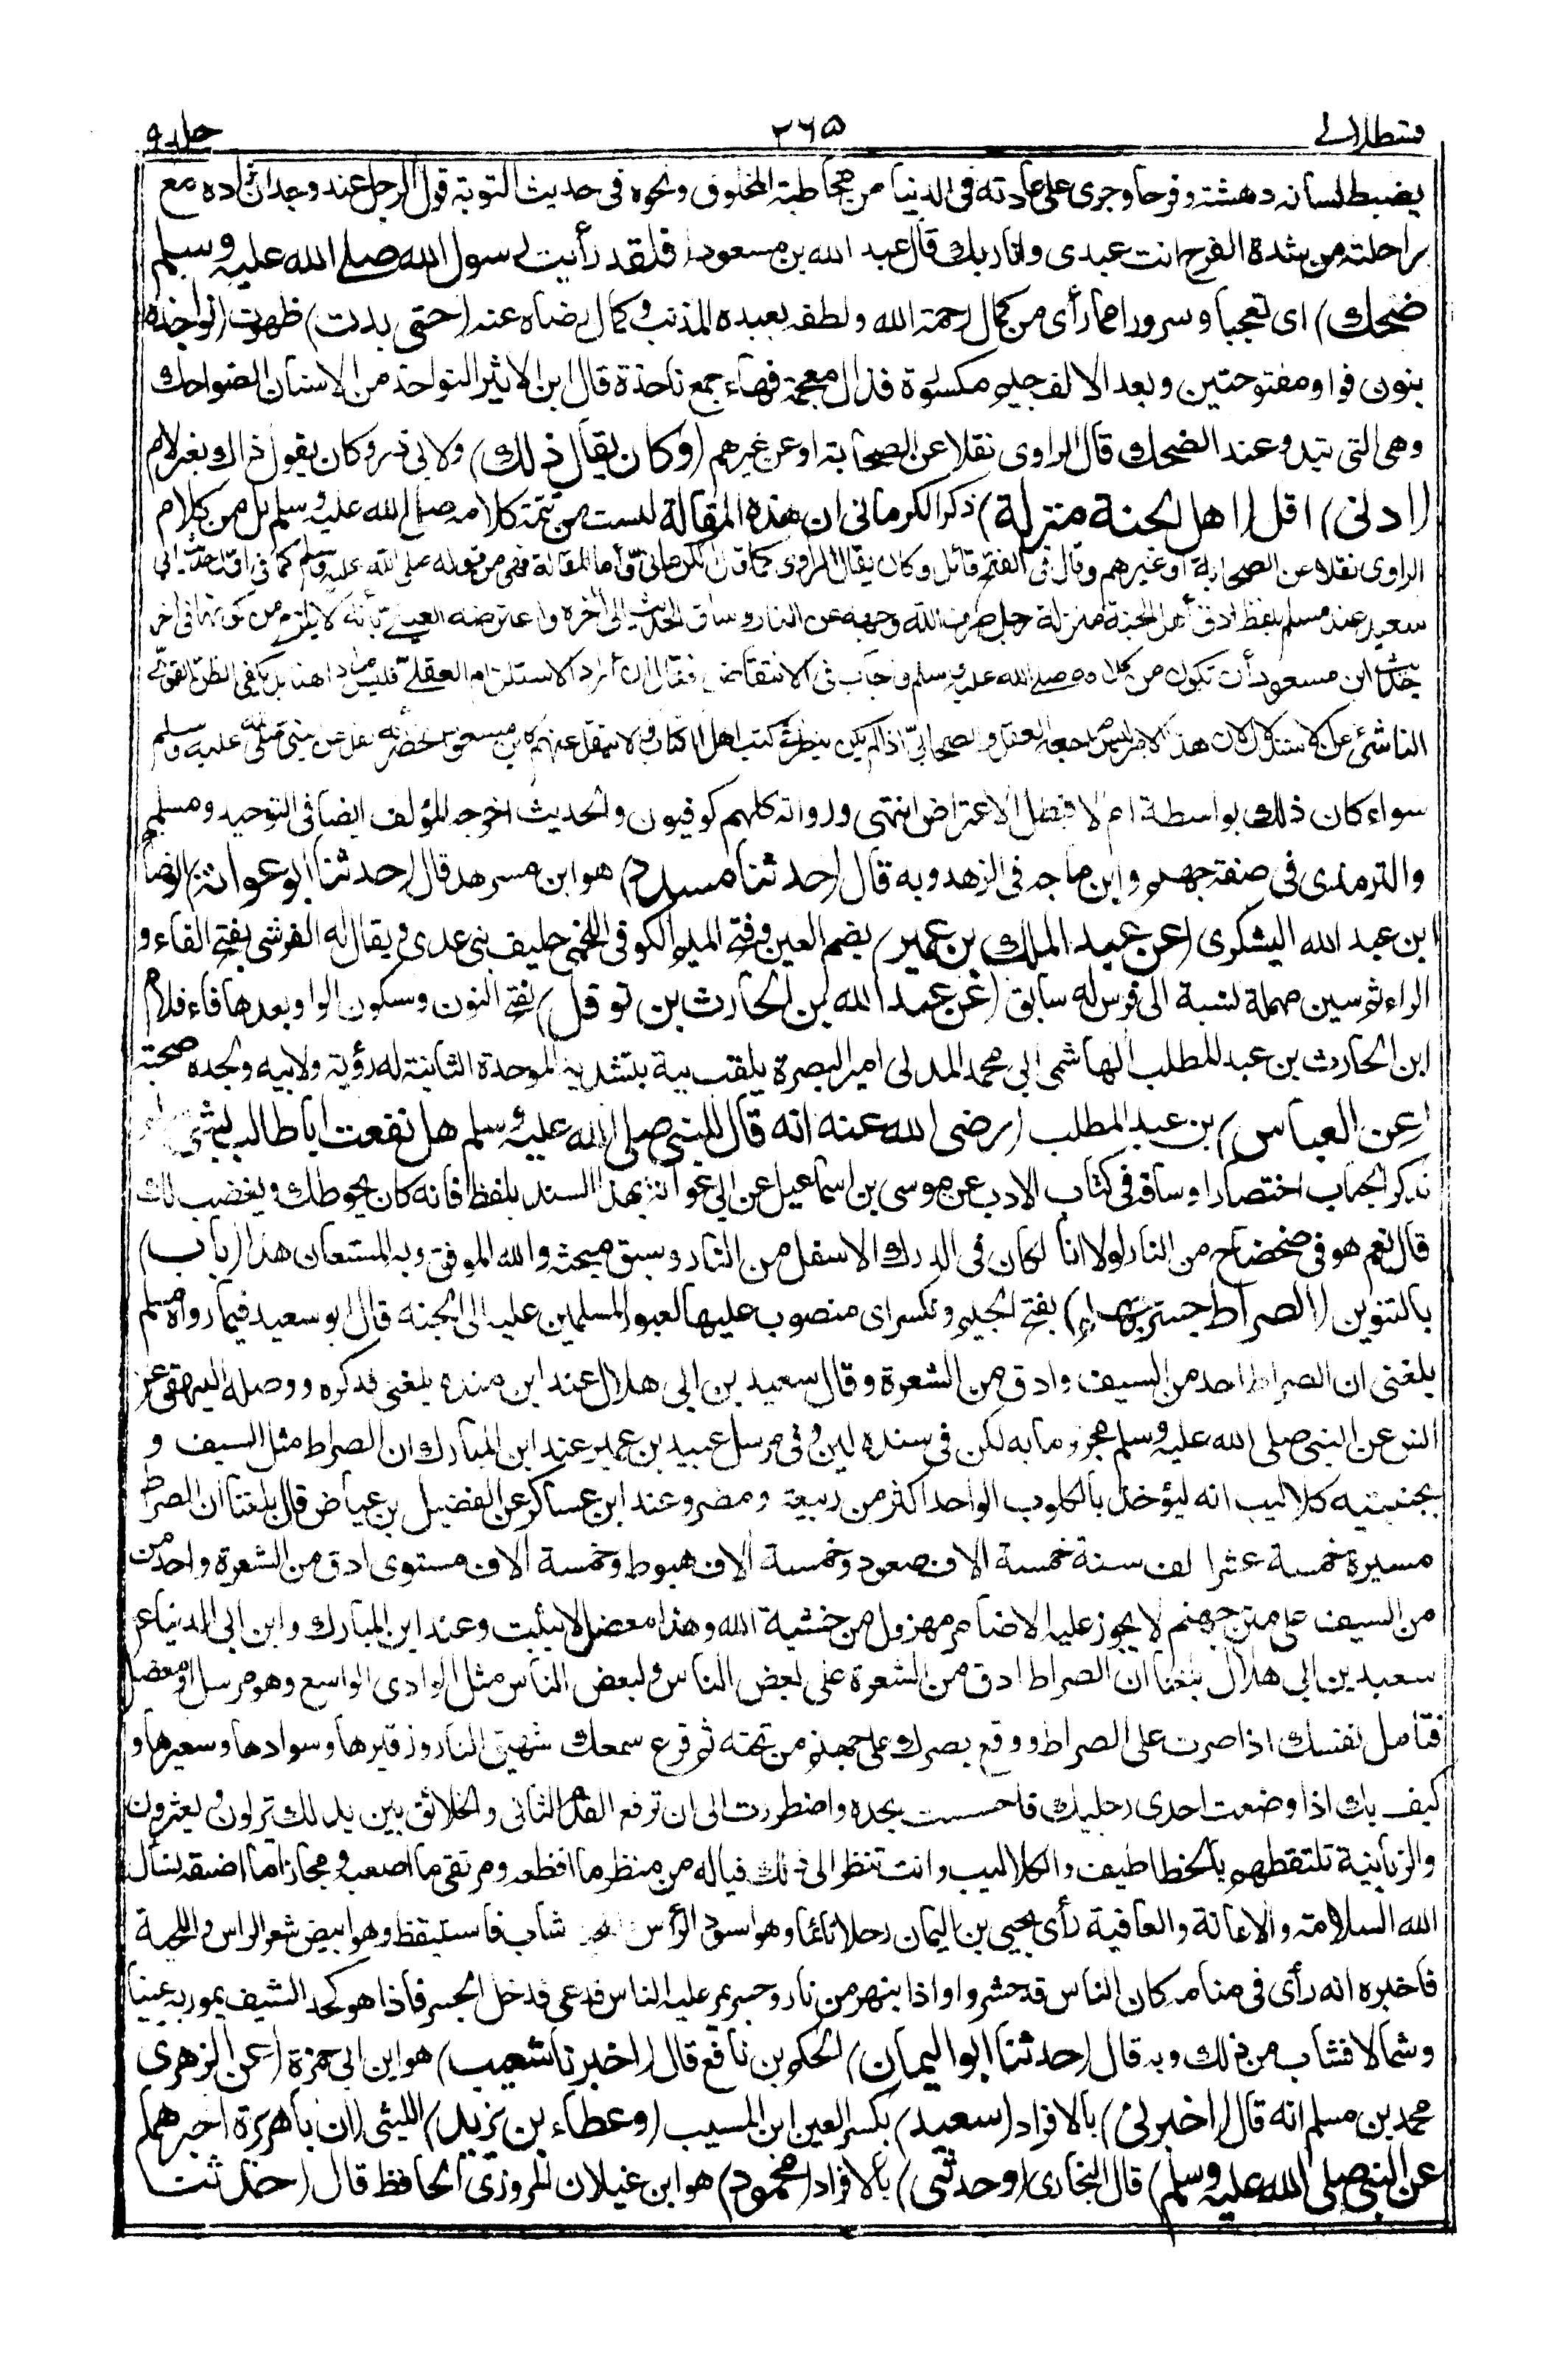 قسطلانى ٢٦٥ جلد ٩
يضبط لسانه دهشة وفرحا وجرى على عادته فى الدنيا من مخاطبة المخلوق ونحوه فى حديث التوبة قول الرجل عند وجدان زاده مع
راحلته من شدة الفرح انت عبدى وانا ربك قال عبد الله بن مسعود فلقد رأيت رسول الله صلى الله عليه وسلم
ضحك) اى تعجبا وسرورا مما رأى من كمال رحمة الله ولطفه بعبده المذنب وكمال رضاه عنه (حتى بدت) ظهرت (نواجذه
بنون فواو مفتوحتين وبعد الالف جيم مكسورة فذال معجمة فهاء جمع ناجذة قال ابن الاثير النواجذ من الاسنان الضواحك
وهى التى تبدو عند الضحك قال الراوى نقلا عن الصحابة او عن غيرهم (وكان يقال ذلك) ولابى ذر وكان يقول ذاك بغير لام
(ادنى) اقل (اهل الجنة منزلة) ذكر الكرمانى ان هذه المقالة ليست من تتمة كلامه صلى الله عليه وسلم بل من كلام
الراوى نقلا عن الصحابة أو غيرهم وقال فى الفتح قائل وكان يقال الراوى كما قال الكرمانى وأما المقالة فهى من قوله صلى الله عليه وسلم كما فى اول حديث ابى
سعيد عند مسلم بلفظ ادنى أهل الجنة منزلة رجل صرف الله وجهه عن النار وساق الحديث الى آخره واعترضه العينى بأنه لا يلزم من كونها فى آخر
حديث ابن مسعود أن تكون من كلامه صلى الله عليه وسلم وأجاب فى الانتقاض فقال ان أراد الاستلزام العقلى فليس مرادا هنا بل يكفى الظن القوى
الناشئ عن الاستدلال لان هذا الامر ليس مرجعه العقل والصحابى اذا لم يكن ينظر فى كتب اهل الكتاب ولا ينقل عنهم كابن مسعود انحصر أنه نقل عن النبى صلى الله عليه وسلم
سواء كان ذلك بواسطة ام لا فبطل الاعتراض انتهى ورواته كلهم كوفيون والحديث اخرجه المؤلف ايضا فى التوحيد ومسلم
والترمذى فى صفة جهنم وابن ماجه فى الزهد وبه قال (حدثنا مسدد) هو ابن مسرهد قال (حدثنا ابو عوانة) الوضا
ابن عبد الله اليشكرى (عن عبد الملك بن عمير) بضم العين وفتح الميم الكوفى اللخمى حليف بنى عدى ويقال له الفرسى بفتح الفاء و
الراء ثم سين مهملة نسبة الى فرس له سابق (عن عبد الله بن الحارث بن نوفل) بفتح النون وسكون الواو بعدها فاء فلام
ابن الحارث بن عبد المطلب الهاشمى ابى محمد المدنى امير البصرة يلقب ببة بتشديد الموحدة الثانية له رؤية ولابيه ولجده صحبة
(عن العباس) بن عبد المطلب (رضى الله عنه انه قال للنبى صلى الله عليه وسلم هل نفعت ابا طالب بشئ)
يذكر الجواب اختصارا وساقه فى كتاب الادب عن موسى بن اسماعيل عن ابى عوانة بهذا السند بلفظ فانه كان يحوطك ويغضب لك
قال نعم هو فى ضحضاح من النار لولا انا لكان فى الدرك الاسفل من النار وسبق مبحثه والله الموفق وبه المستعان هذا (باب)
بالتنوين (الصراط جسر جهنم) بفتح الجيم وتكسر اى منصوب عليها لعبور المسلمين عليه الى الجنة قال ابو سعيد فيما رواه مسلم
بلغنى ان الصراط احد من السيف وادق من الشعرة وقال سعيد بن ابى هلال عند ابن منده بلغنى فذكره ووصله البيهقى عن
انس عن النبى صلى الله عليه وسلم مجزوما به لكن فى سنده لين وفى مرسل عبيد بن عمير عند ابن المبارك ان الصراط مثل السيف و
بجنبتيه كلاليب انه ليؤخذ بالكلوب الواحد اكثر من ربيعة ومضر وعند ابن عساكر عن الفضيل بن عياض قال بلغنا ان الصراط
مسيرة خمسة عشر الف سنة خمسة الاف صعود وخمسة الاف هبوط وخمسة الاف مستوى ادق من الشعرة واحد من
من السيف على متن جهنم لا يجوز عليه الا ضامر مهزول من خشية الله وهذا معضل لا يثبت وعند ابن المبارك وابن ابى الدنيا عن
سعيد بن ابى هلال بلغنا ان الصراط ادق من الشعرة على بعض الناس ولبعض الناس مثل الوادى الواسع وهو مرسل او معضل
فتأمل نفسك اذا صرت على الصراط ووقع بصرك على جهنم من تحته ثم قرع سمعك شهيق النار وزفيرها وسوادها وسعيرها و
كيف بك اذا وضعت احدى رجليك فاحسست بحده واضطررت الى ان ترفع القدم الثانى والخلائق بين يديك يزلون ويعثرون
والزبانية تلتقطهم بالخطاطيف والكلاليب وانت تنظر الى ذلك فياله من منظر ما افظعه ومرتقى ما اصعبه ومجاز ما اضيقه نسأل
الله السلامة والاعانة والعافية رأى يحيى بن اليمان رجلا نائما وهو اسود الرأس شاب فاستيقظ وهو ابيض شعر الراس واللحية
فاخبره انه رأى فى منامه كان الناس قد حشروا واذا بنهر من نار وجسر يمر عليه الناس فدعى فدخل الجسر فاذا هو كحد السيف يمور به يمينا
وشمالا فشاب من ذلك وبه قال (حدثنا ابو اليمان) الحكم بن نافع قال (اخبرنا شعيب) هو ابن ابى حمزة (عن الزهرى
محمد بن مسلم انه قال (اخبرنى) بالافراد (سعيد) بكسر العين ابن المسيب (وعطاء بن يزيد) الليثى (ان باهريرة اخبرهما
عن النبى صلى الله عليه وسلم) قال البخارى (وحدثنى) بالافراد (محمود) هو ابن غيلان المروزى الحافظ قال (حدثنا